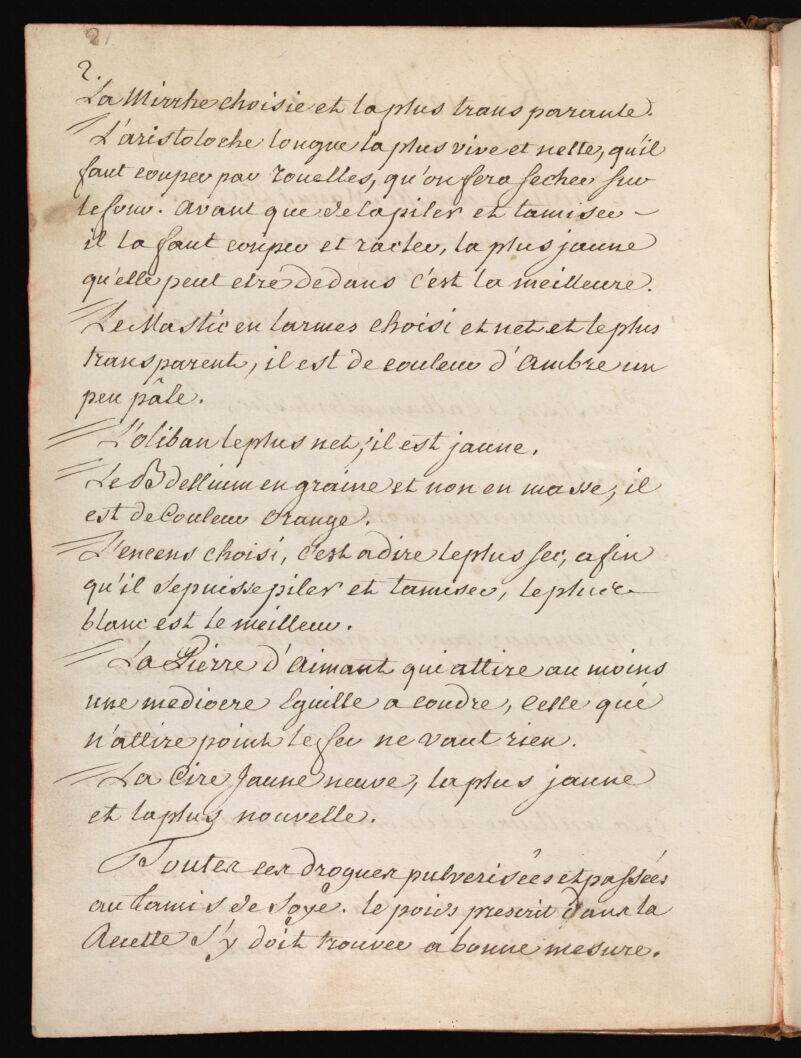 2
2.
La Mirrhe choisie et la plus transparante.
L'aristoloche longue la plus vive et nette, qu'il
faut couper par rouelles, qu'on fera secher sur
le four. avant que de la piler et tamiser
il la faut couper et racler, la plus jaune
qu'elle peut etre dedans c'est la meilleure.
Le Mastic en larmes choisi et net et le plus
transparent, il est de couleur d'ambre un
peu pâle.
L'oliban le plus net, il est jaune.
Le Bdellium en graine et non en masse, il
est de Couleur orange.
L'encens choisi, c'est a dire le plus sec, afin
qu'il se puisse piler et tamiser, le plus
blanc est le meilleur.
La Pierre d'aimant qui attire au moins
une mediocre Eguille a coudre, Celle qui
n'attire point le fer ne vaut rien.
La Cire Jaune neuve, la plus jaune
et la plus nouvelle.
Toutes ces drogues pulverisées et passées
au Tamis de Soye. le poids prescrit dans la
Recette s'y doit trouver a bonne mesure.